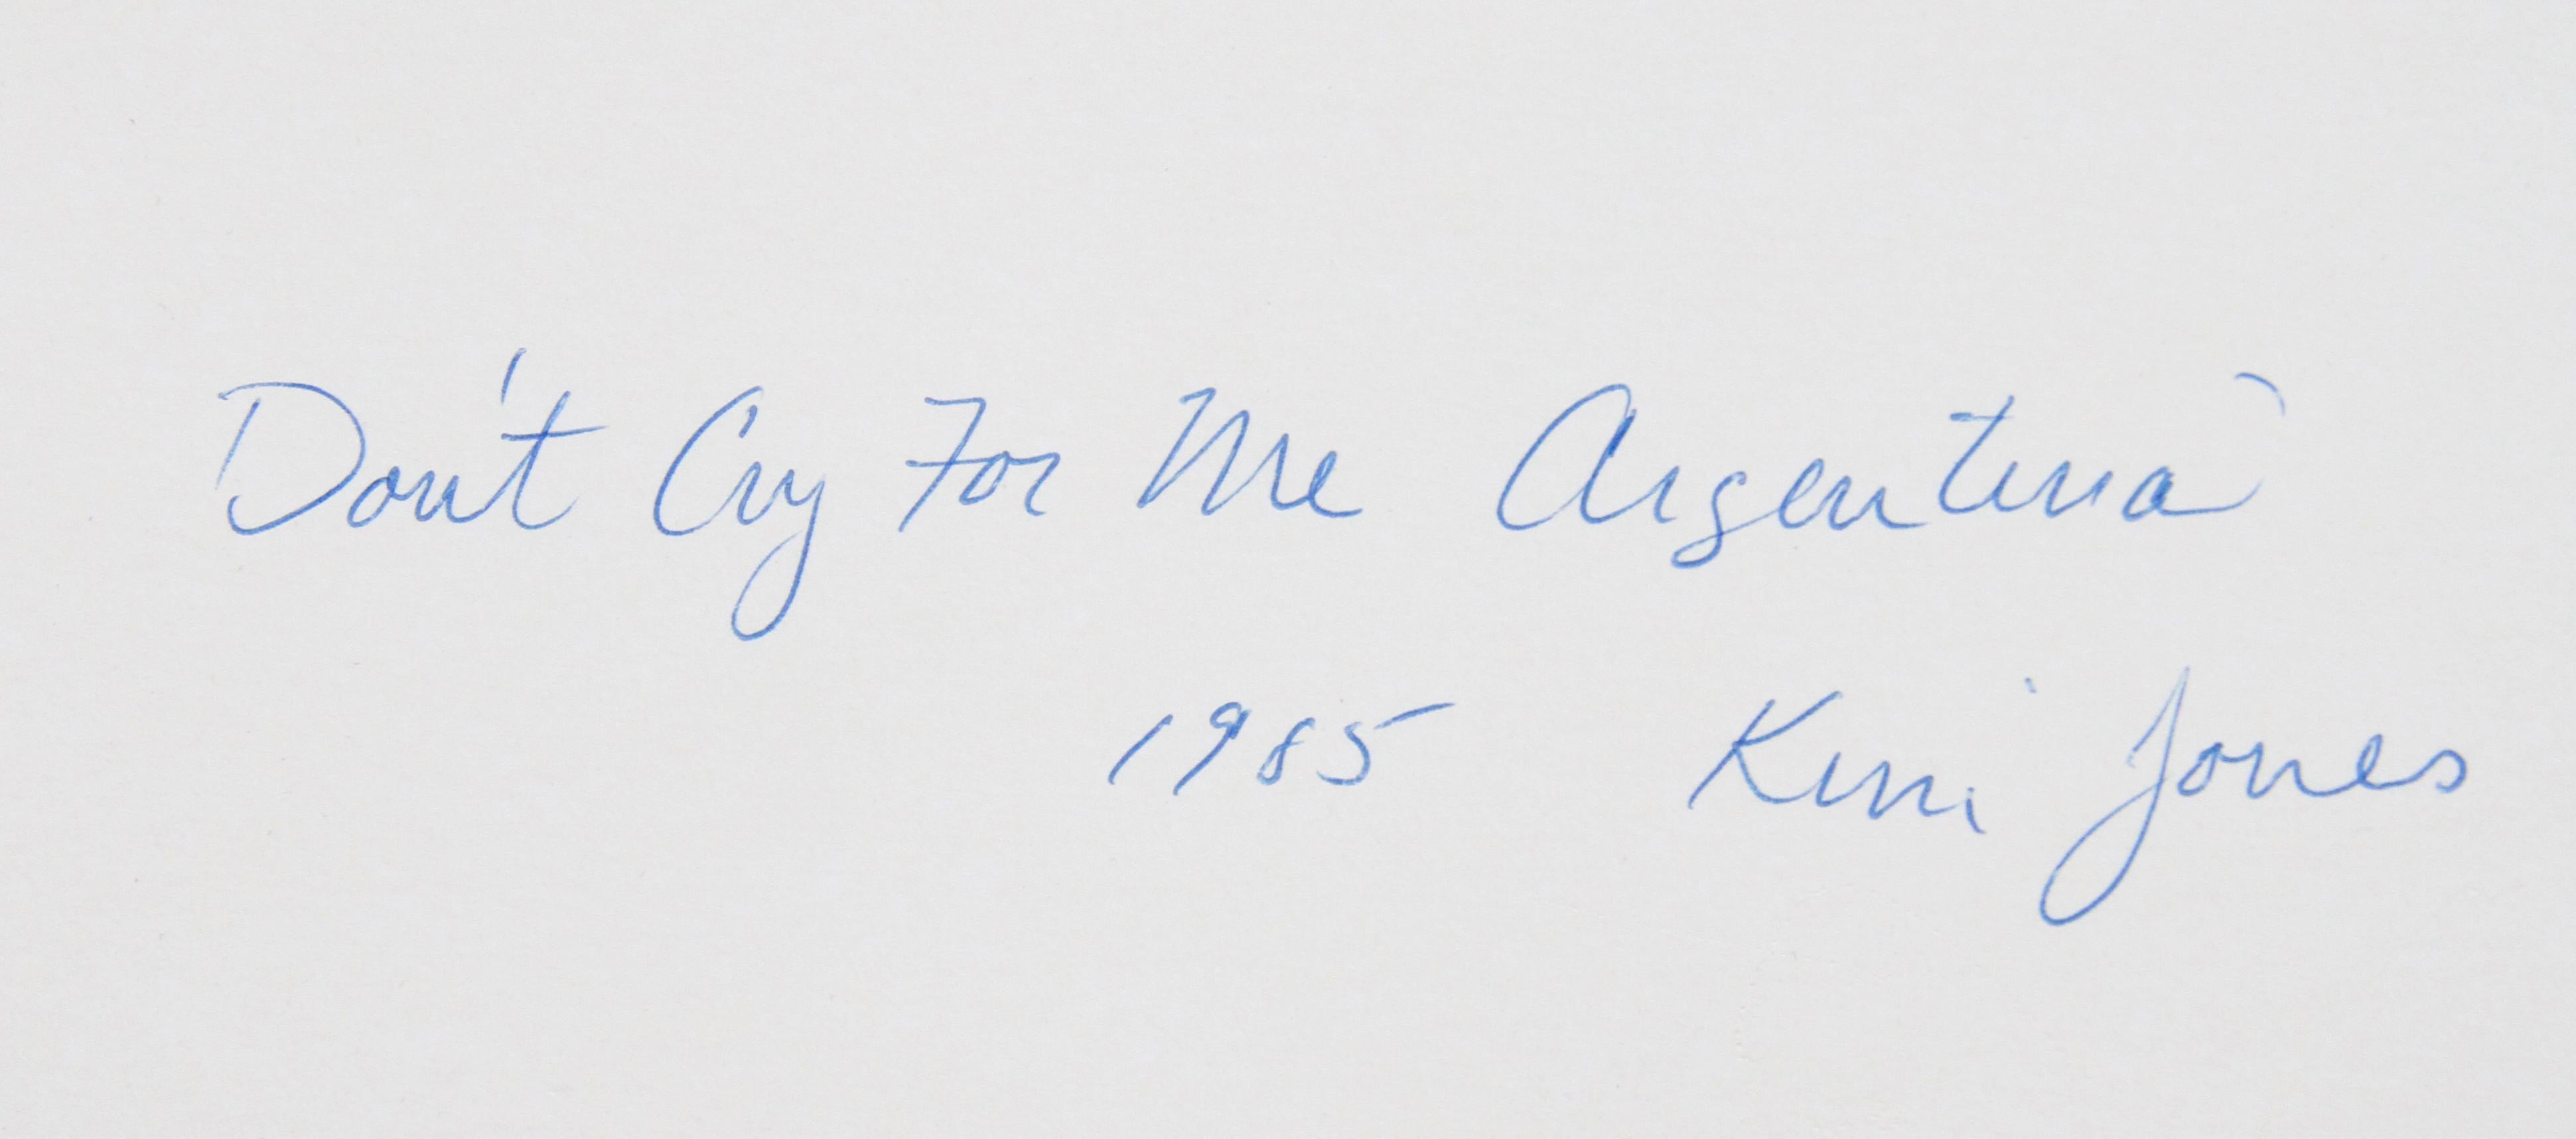 Don't Cry For Me Argentina
1985 Kimi Jones